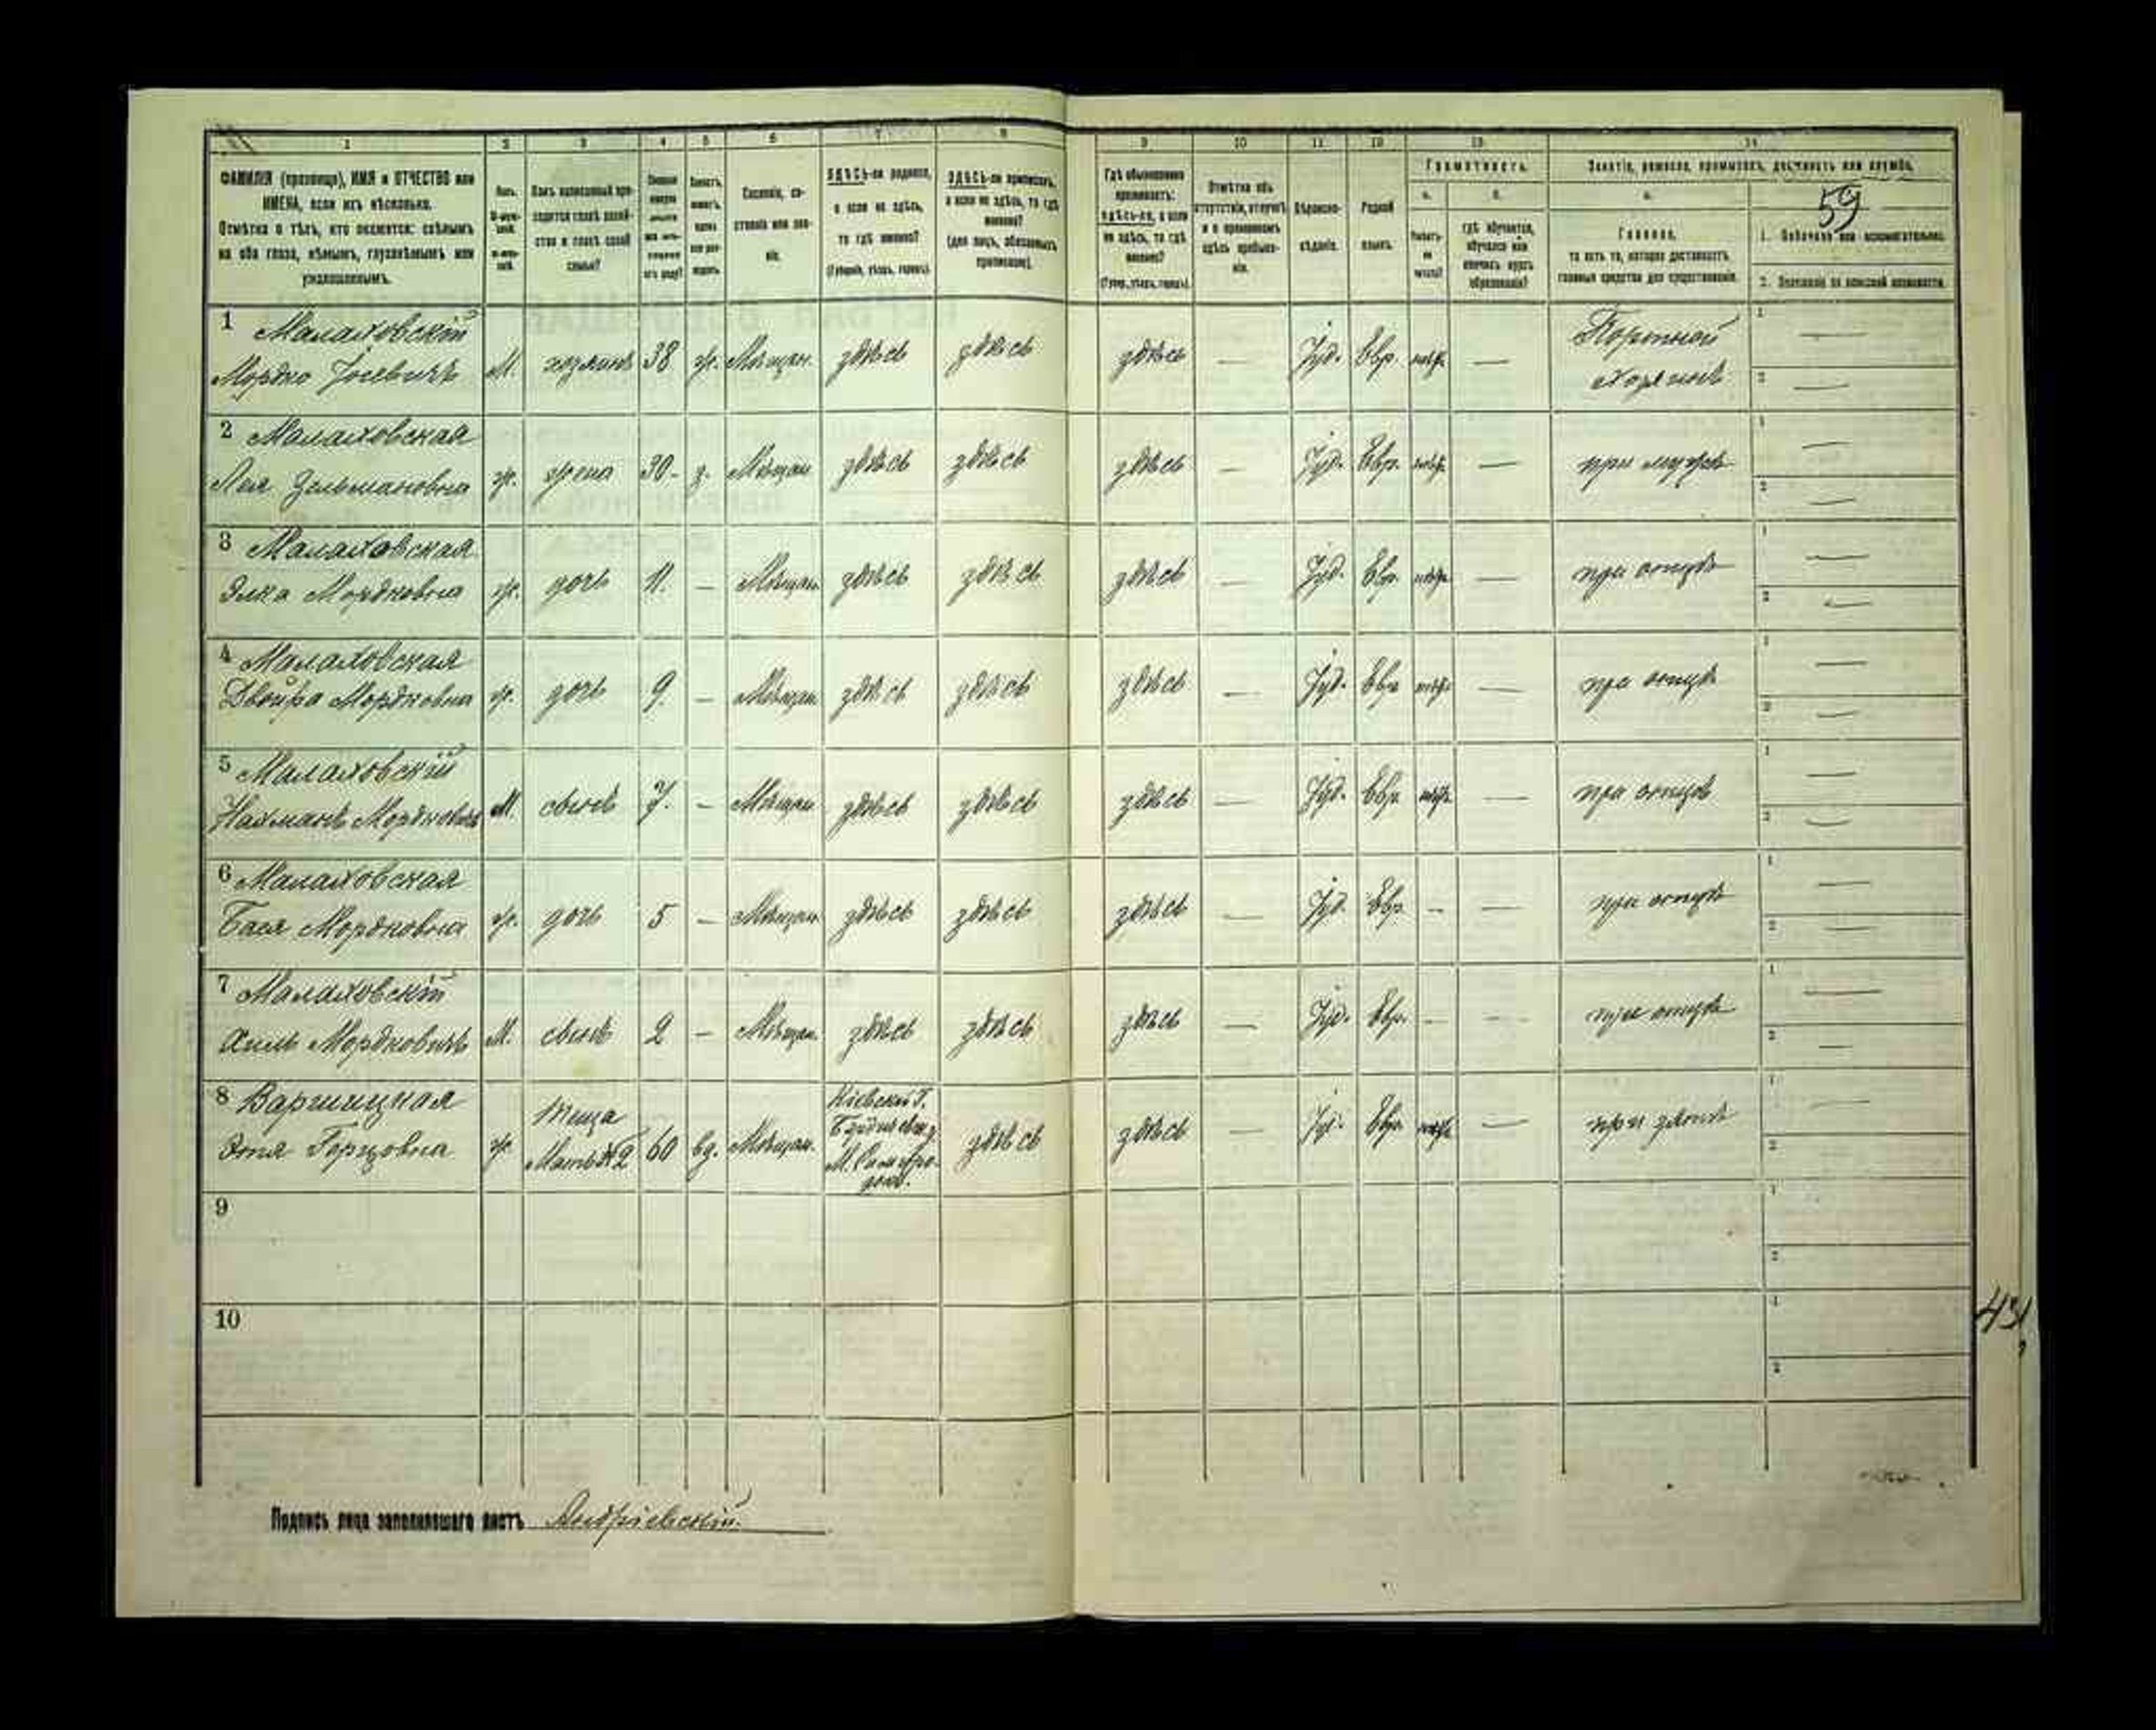 1 2 3 4 5 6 7 8 9 10 11 12 13 14
ФАМИЛІЯ (прозвище), ИМЯ и ОТЧЕСТВО или ИМЕНА, если ихъ нѣсколько.
Отмѣтка о тѣхъ, кто окажется: слѣпымъ на оба глаза, нѣмымъ, глухонѣмымъ или умалишеннымъ.
Полъ.
Какъ записанный приходится главѣ хозяйства и главѣ своей семьи?
Сословіе, состояніе или званіе.
ЗДѢСЬ-ли родился, а если не здѣсь, то гдѣ именно?
(Губернія, уѣздъ, городъ).
ЗДѢСЬ-ли приписанъ, а если не здѣсь, то гдѣ именно?
(для лицъ, обязанныхъ припискою).
Гдѣ обыкновенно проживаетъ: здѣсь-ли, а если не здѣсь, то гдѣ именно?
(Губер., уѣздъ, городъ).
Отмѣтка объ отсутствіи, отлучкѣ и о временномъ здѣсь пребываніи.
Вѣроисповѣданіе.
Родной языкъ.
Грамотность.
а.
Умѣетъ-ли читать?
б.
гдѣ обучается, обучался или кончилъ курсъ образованія?
Занятіе, ремесло, промыселъ, должность или служба.
59
а.
Главное,
то есть то, которое доставляетъ главныя средства для существованія.
1. Побочное или вспомогательное.
2. Положеніе по воинской повинности.
1 Малаховскій
Мордко Іосевичъ М. хозяинъ 38 ж. Мѣщан. здѣсь здѣсь здѣсь — Іуд. Евр. — Портной
хозяинъ 1 — 2 —
2 Малаховская
Лея Зельмановна ж. жена 30 - з. Мѣщан здѣсь здѣсь здѣсь — Іуд. Евр. — при мужѣ 1 — 2 —
3 Малаховская
Элка Мордковна ж. дочь 11. — Мѣщан здѣсь здѣсь здѣсь — Іуд. Евр. — при отцѣ 1 — 2 —
4 Малаховская
Двойра Мордковна ж. дочь 9. — Мѣщан здѣсь здѣсь здѣсь — Іуд. Евр — при отцѣ 1 — 2 —
5 Малаховскій
Нахманъ Мордковичъ М. сынъ 7. — Мѣщан здѣсь здѣсь здѣсь — Іуд. Евр. — при отцѣ 1 — 2 —
6 Малаховская
Бася Мордковна ж. дочь 5 — Мѣщан. здѣсь здѣсь здѣсь — Іуд. Евр. — — при отцѣ 1 — 2 —
7 Малаховскій
Хиль Мордковичъ М. сынъ 2 — Мѣщан. здѣсь здѣсь здѣсь — Іуд. Евр. — — при отцѣ 1 — 2 —
8 Варшицкая
Этя Герцовна ж. Теща
Мать №2 60 вд. Мѣщан. Кіевской Г.
М. здѣсь здѣсь — Іуд. Евр. — при зятѣ 1 — 2
9 1 2
10 1 2
Подпись лица заполнившаго листъ Андріевскій.